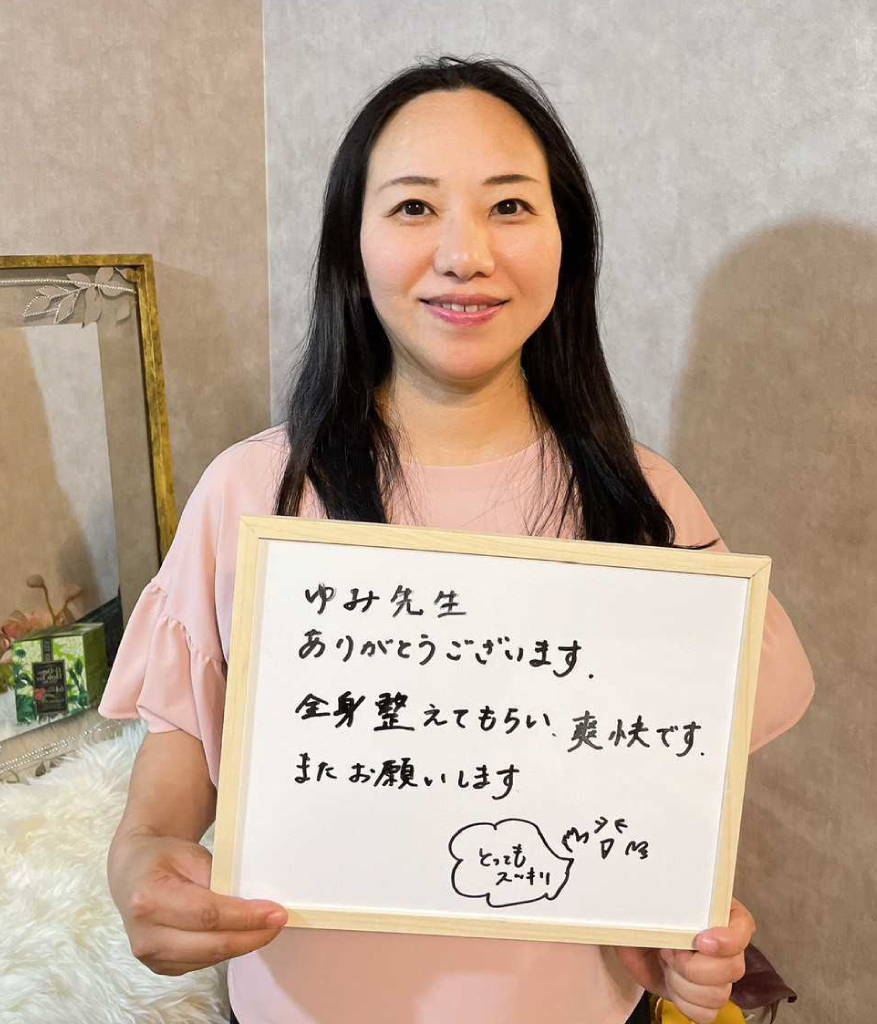 ゆみ先生
ありがとうございます.
全身整えてもらい、爽快です.
またお願いします
とっても
スッキリ